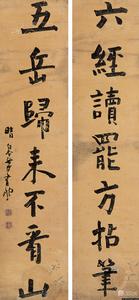 六經讀罷方拈筆
五岳歸来不看山